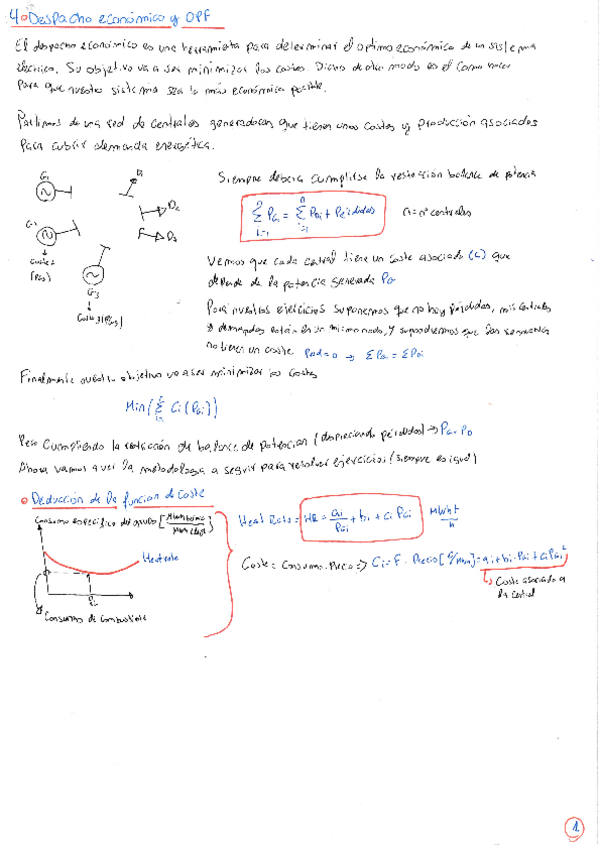 4. Despacho económico y OPF
El despacho económico es una herramienta para determinar el óptimo económico de un sistema
eléctrico. Su objetivo va a ser minimizar los costes. Dicho de otro modo es el como hacer
para que nuestro sistema sea lo más económico posible.
Partimos de una red de centrales generadoras que tienen unos costes y producción asociados
para cubrir demanda energética.
Siempre debería cumplirse la restricción balance de potencia
G1
D1
D2
D3
G2
G3
Costes
(PG2)
Coste3(PG3)
n∑i=1 PGi = n∑i=1 PDi + Pérdidas
n = nº centrales
Vemos que cada central tiene un coste asociado (C) que
depende de la potencia generada PG
Para nuestros ejercicios suponemos que no hay pérdidas, mis centrales
y demandas están en un mismo nodo, y supondremos que las
no tienen un coste Perd=0 → ∑PGi = ∑PDi
Finalmente nuestro objetivo va a ser minimizar los costes
Min(∑ Ci(PGi))
Pero cumpliendo la restricción de balance de potencias (despreciando pérdidas) → PG = PD
Ahora vamos a ver la metodología a seguir para resolver ejercicios (siempre es igual)
Deducción de la función de coste
Consumo específico del grupo
Heat rate
PG
Consumo de combustible
Heat Rate = HR = ai/PGi + bi + ci PGi
Coste = Consumo · Precio => Ci = F · Precio = ai + bi · PGi + ci PGi²
Coste asociado a
la central
1